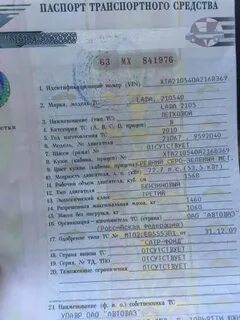 ПАСПОРТ ТРАНСПОРТНОГО СРЕДСТВА
63 МХ 841976
1. Идентификационный номер (VIN) XTA210540A2168369
2. Марка, модель ТС LADA, 210540
LADA 2105
3. Наименование (тип ТС) ЛЕГКОВОЙ
4. Категория ТС (А, В, С, D, прицеп) В
5. Год изготовления ТС 2010
6. Модель, № двигателя
7. Шасси (рама) № ОТСУТСТВУЕТ
8. Кузов (кабина, прицеп) № XTA210540A2168369
9. Цвет кузова (кабины, прицепа) СРЕДНИЙ СЕРО-ЗЕЛЕНЫЙ МЕТ.
10. Мощность двигателя, л. с. (кВт) 72.7 л.с. (53.5 кВт)
11. Рабочий объем двигателя, куб. см
12. Тип двигателя БЕНЗИНОВЫЙ
13. Экологический класс ТРЕТИЙ
14. Разрешенная максимальная масса, кг 1460
15. Масса без нагрузки, кг
16. Организация-изготовитель ТС (страна) ОАО "АВТОВАЗ"
(Российская Федерация)
17. Одобрение типа ТС № 31.12.09
"САТР-ФОНД"
18. Страна вывоза ТС ОТСУТСТВУЕТ
19. Серия, № ТД, ТПО ОТСУТСТВУЕТ
20. Таможенные ограничения ОТСУТСТВУЕТ
21. Наименование (ф. и. о.) собственника ТС
ОАО "АВТОВАЗ"